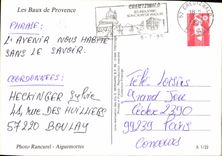 Les Baux de Provence
CREUTZWALD
PHRASE:
L'AVENIR NOUS HABITE
SANS LE SAVOIR.
COORDONNÉES:
HECKINGER Sylvie
44, RUE DES HUILIERS
57220 BOULAY
Télé Loisirs
Grand Jeu
Cedex 2390
99239 Paris
Concours
Photo Rancurel - Aiguemortes